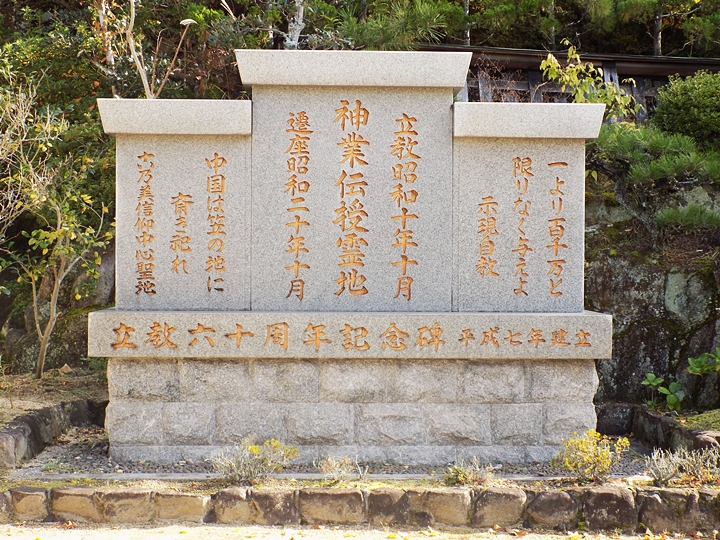 一より百千万と
限りなく与えよ
示現自教
立教昭和十年十月
神業伝授霊地
遷座昭和二十年十月
中国は笠の地に
育き祀れ
六乃美信仰中心聖地
立教六十周年記念碑 平成七年建立